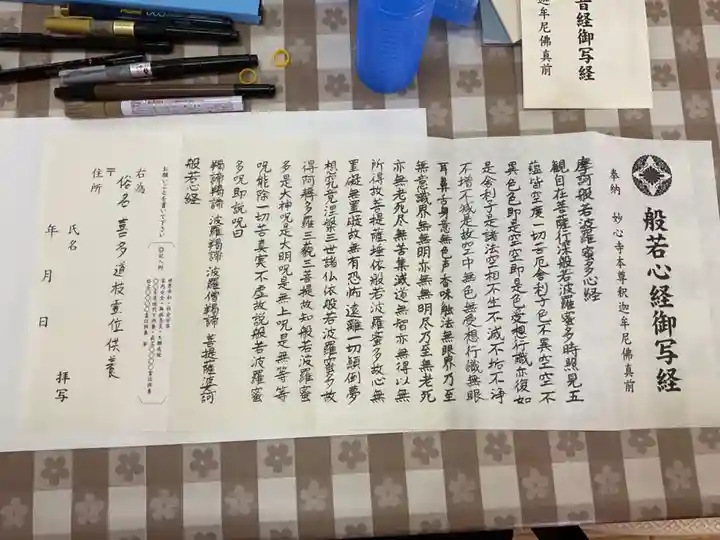 音経御写経
迦牟尼佛真前
奉納 妙心寺本尊釈迦牟尼佛真前
般若心経御写経
摩訶般若波羅蜜多心経
観自在菩薩行深般若波羅蜜多時照見五
蘊皆空度一切苦厄舎利子色不異空空不
異色色即是空空即是色受想行識亦復如
是舎利子是諸法空相不生不滅不垢不浄
不増不減是故空中無色無受想行識無眼
耳鼻舌身意無色声香味触法無眼界乃至
無意識界無無明亦無無明尽乃至無老死
亦無老死尽無苦集滅道無智亦無得以無
所得故菩提薩埵依般若波羅蜜多故心無
罣礙無罣礙故無有恐怖遠離一切顛倒夢
想究竟涅槃三世諸仏依般若波羅蜜多故
得阿耨多羅三藐三菩提故知般若波羅蜜
多是大神呪是大明呪是無上呪是無等等
呪能除一切苦真実不虚故説般若波羅蜜
多呪即説呪曰
羯諦羯諦 波羅羯諦 波羅僧羯諦 菩提薩婆訶
般若心経
お願いごとを書いて下さい
右為
俗名 喜多道枝霊位供養
〒
住所
氏名
年 月 日 拝写